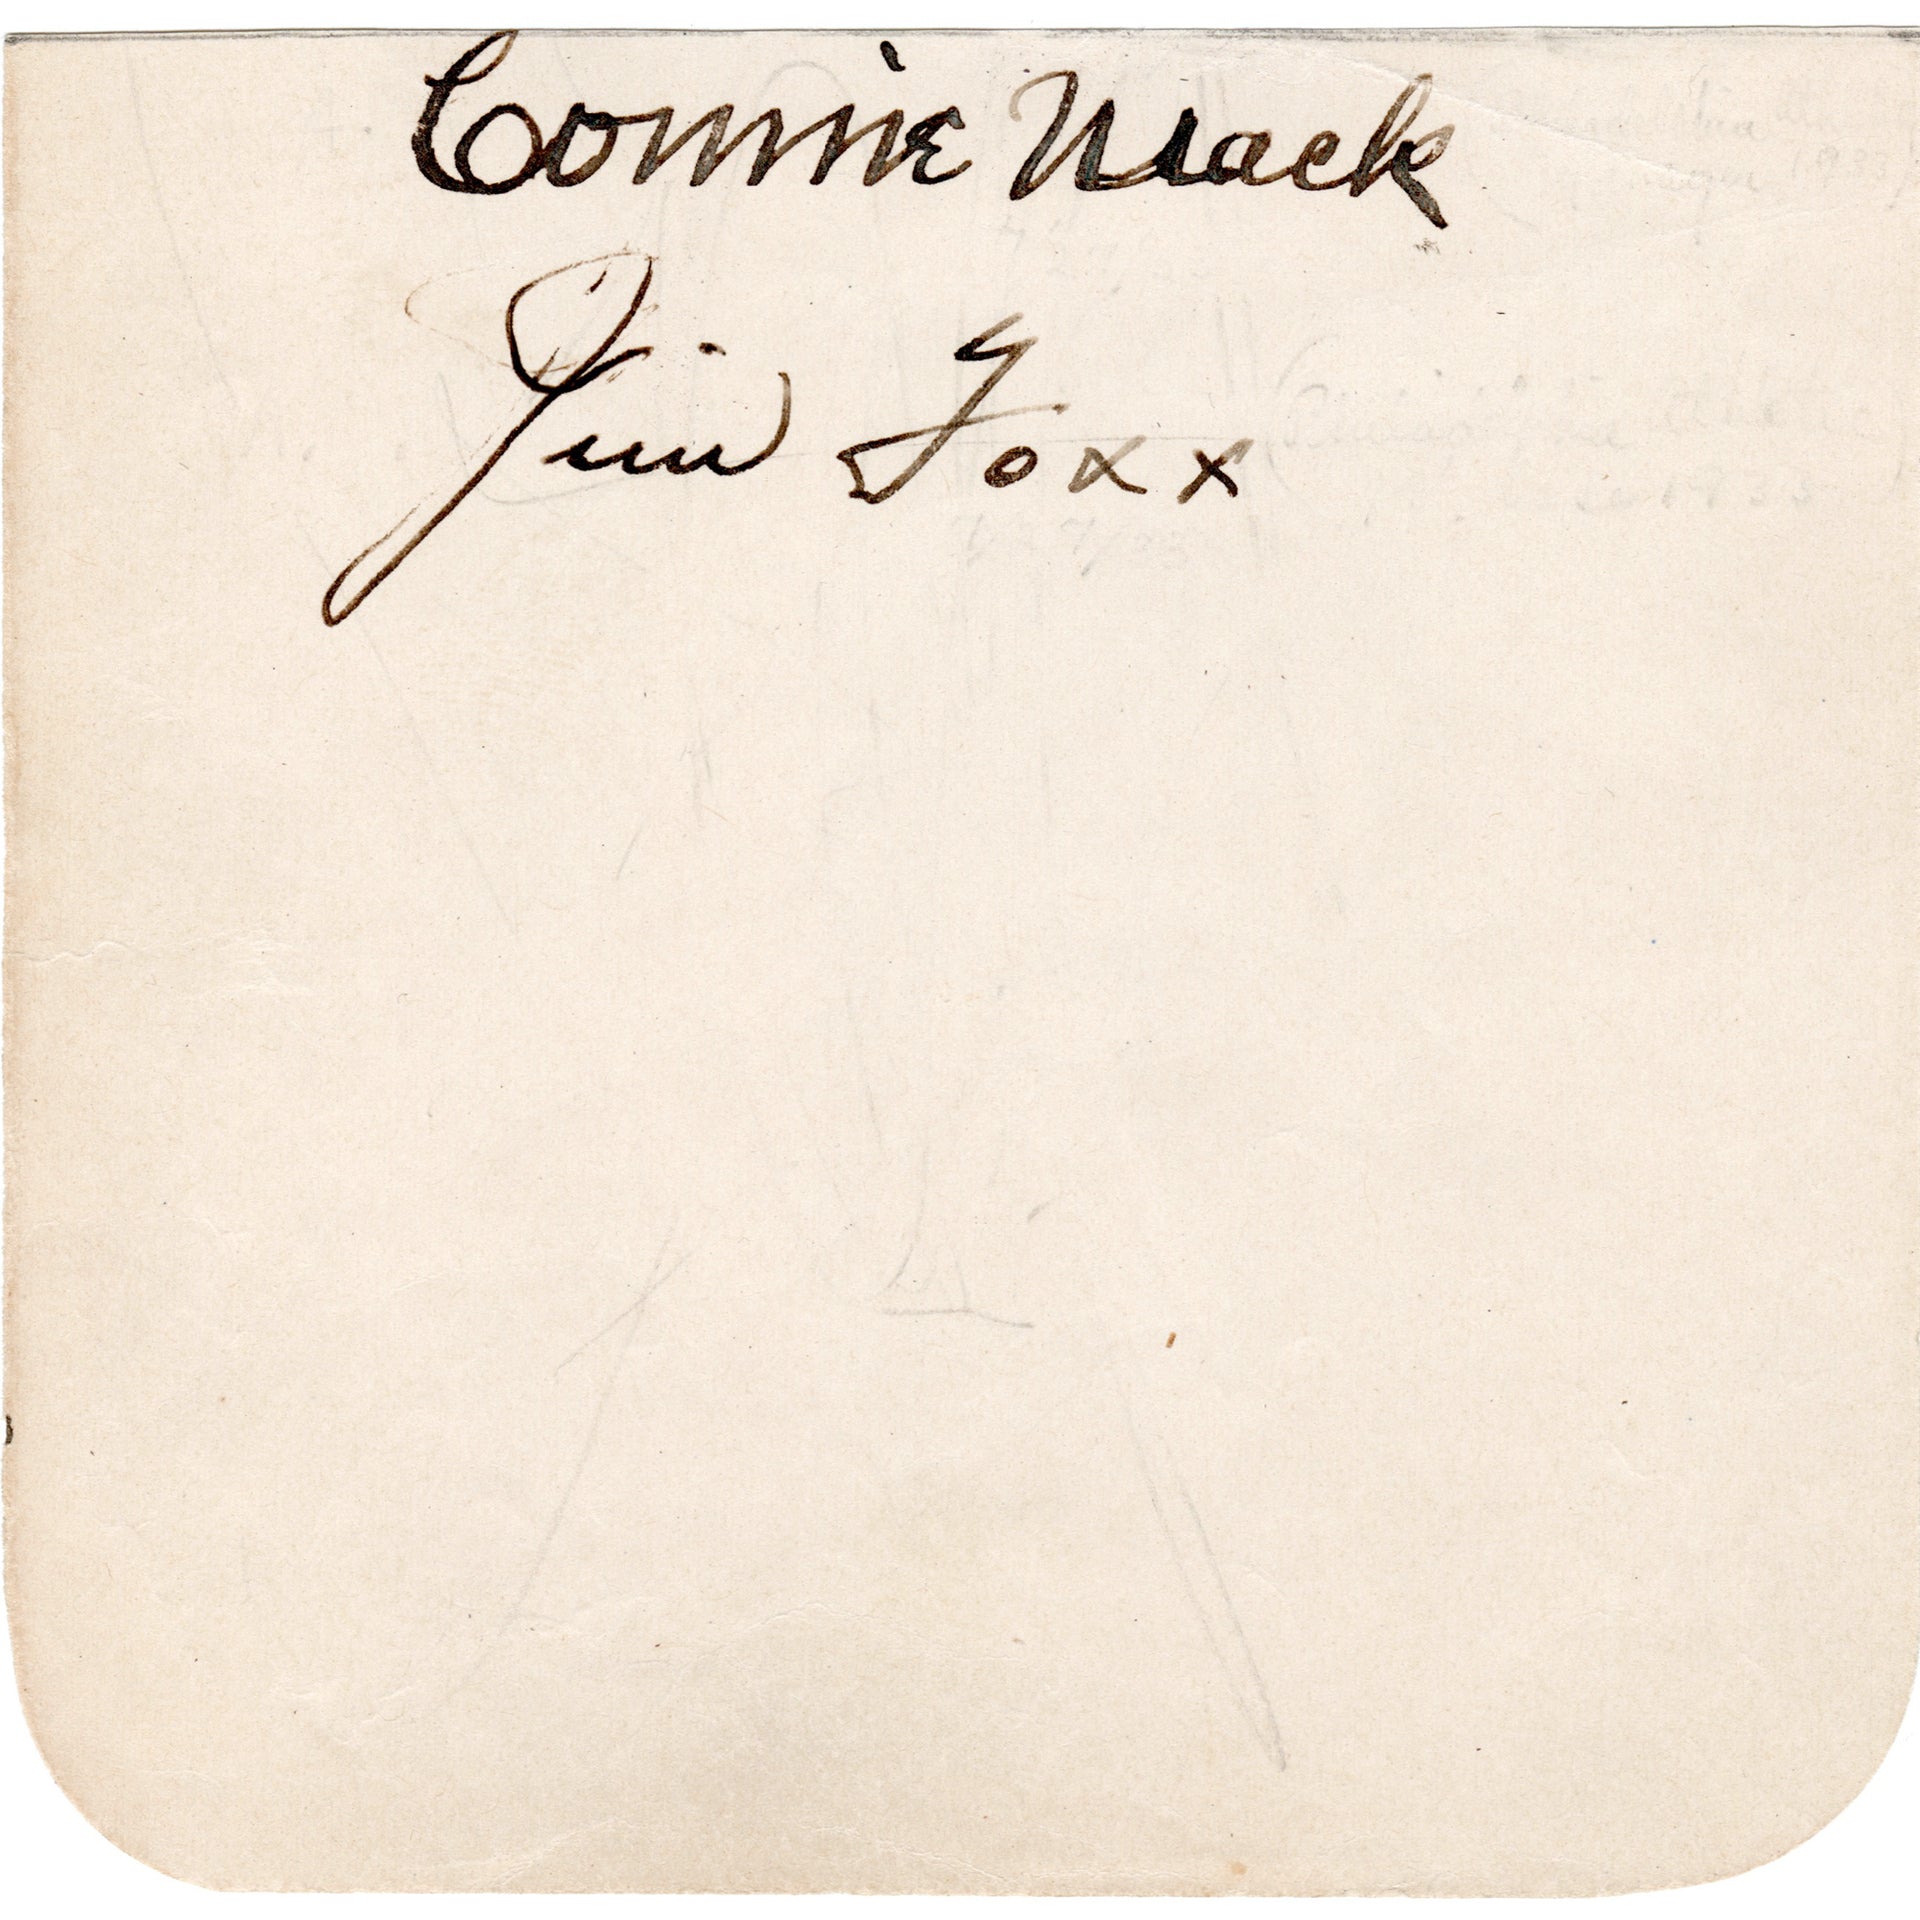 Connie Mack
Jim Foxx